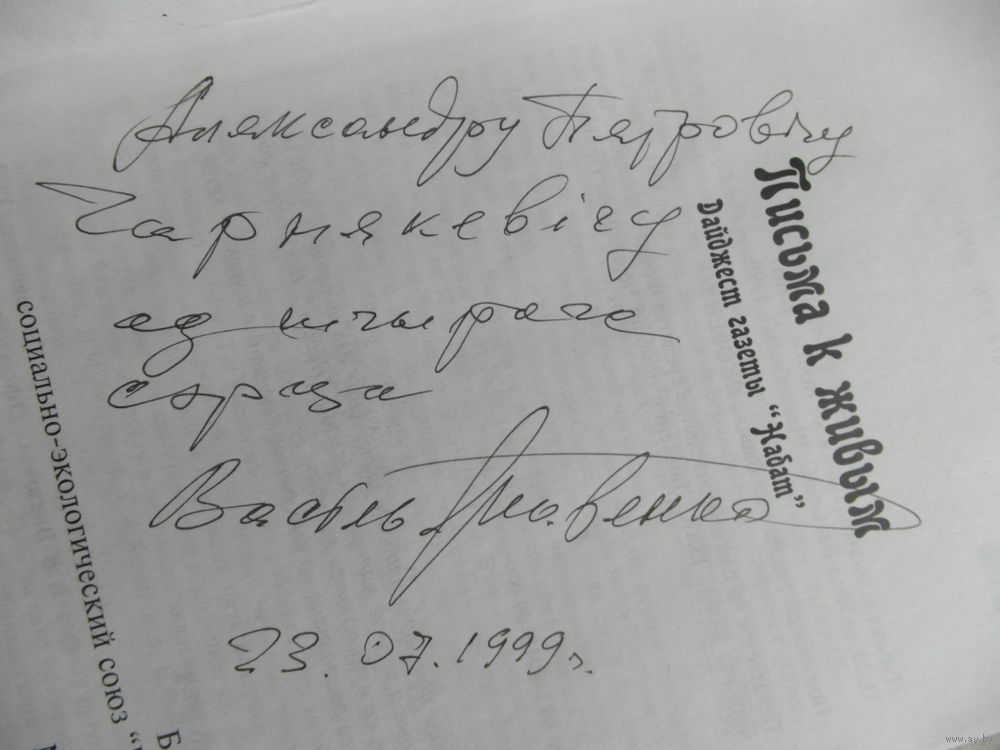 Аляксандру Пятровічу
Чарнякевічу
ад шчырага
сэрца
Васіль Якавенка
23.07.1999г.
Письма к живым
Дайджест газеты “Набат”
социально-экологический союз “
www.ay.by